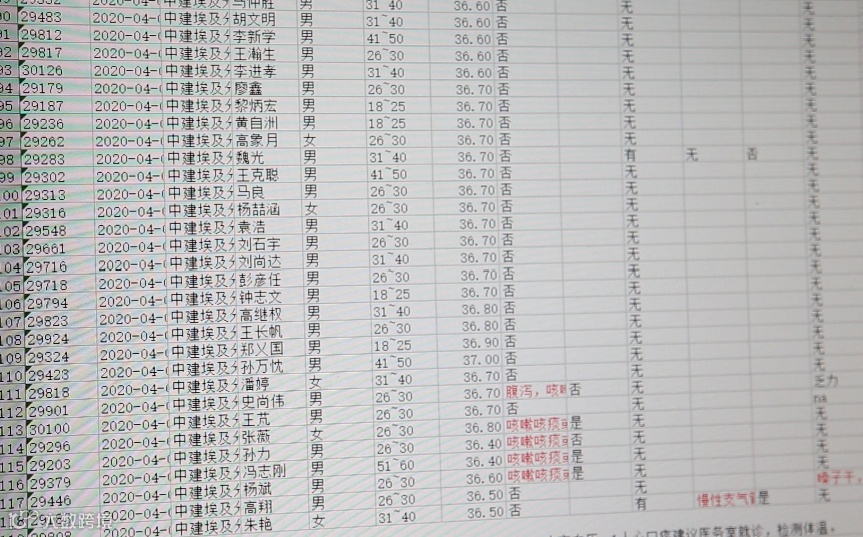 马仲胜 男 31~40 36.60 否 无 无
29483 2020-04-0 中建埃及分 胡文明 男 31~40 36.60 否 无 无
91 29812 2020-04-0 中建埃及分 李新学 男 41~50 36.60 否 无 无
92 29817 2020-04-0 中建埃及分 王瀚生 男 26~30 36.60 否 无 无
93 30126 2020-04-0 中建埃及分 李进孝 男 31~40 36.60 否 无 无
94 29179 2020-04-0 中建埃及分 廖鑫 男 26~30 36.70 否 无 无
95 29187 2020-04-0 中建埃及分 黎炳宏 男 18~25 36.70 否 无 无
96 29236 2020-04-0 中建埃及分 黄自洲 男 18~25 36.70 否 无 无
97 29262 2020-04-0 中建埃及分 高象月 女 26~30 36.70 否 无 无
98 29283 2020-04-0 中建埃及分 魏光 男 31~40 36.70 否 有 无 否 无
99 29302 2020-04-0 中建埃及分 王克聪 男 41~50 36.70 否 无 无
100 29313 2020-04-0 中建埃及分 马良 男 26~30 36.70 否 无 无
101 29316 2020-04-0 中建埃及分 杨喆涵 女 26~30 36.70 否 无 无
102 29548 2020-04-0 中建埃及分 袁浩 男 31~40 36.70 否 无 无
103 29661 2020-04-0 中建埃及分 刘石宇 男 26~30 36.70 否 无 无
104 29716 2020-04-0 中建埃及分 刘尚达 男 31~40 36.70 否 无 无
105 29718 2020-04-0 中建埃及分 彭彦任 男 26~30 36.70 否 无 无
106 29794 2020-04-0 中建埃及分 钟志文 男 18~25 36.70 否 无 无
107 29823 2020-04-0 中建埃及分 高继权 男 31~40 36.80 否 无 无
108 29924 2020-04-0 中建埃及分 王长帆 男 26~30 36.80 否 无 无
109 29324 2020-04-0 中建埃及分 郑义国 男 18~25 36.90 否 无 无
110 29423 2020-04-0 中建埃及分 孙万忱 男 41~50 37.00 否 无 无
111 29818 2020-04-0 中建埃及分 潘婷 女 31~40 36.70 否 无 无
112 29901 2020-04-0 中建埃及分 史尚伟 男 26~30 36.70 腹泻，咳嗽 否 无 乏力
113 30100 2020-04-0 中建埃及分 王芃 男 26~30 36.70 否 无 na
114 29296 2020-04-0 中建埃及分 张薇 女 26~30 36.80 咳嗽咳痰或 是 无 无
115 29203 2020-04-0 中建埃及分 孙力 男 26~30 36.40 咳嗽咳痰或 否 无 无
116 29379 2020-04-0 中建埃及分 冯志刚 男 51~60 36.40 咳嗽咳痰或 是 无 无
117 29446 2020-04-0 中建埃及分 杨斌 男 26~30 36.60 咳嗽咳痰或 是 无 无
2020-04-0 中建埃及分 高翔 男 26~30 36.50 否 无 嗓子干，
29808 2020-04-0 中建埃及分 朱艳 女 31~40 36.50 否 有 慢性支气管 是 无
建议医务室就诊，检测体温。
大数跨境